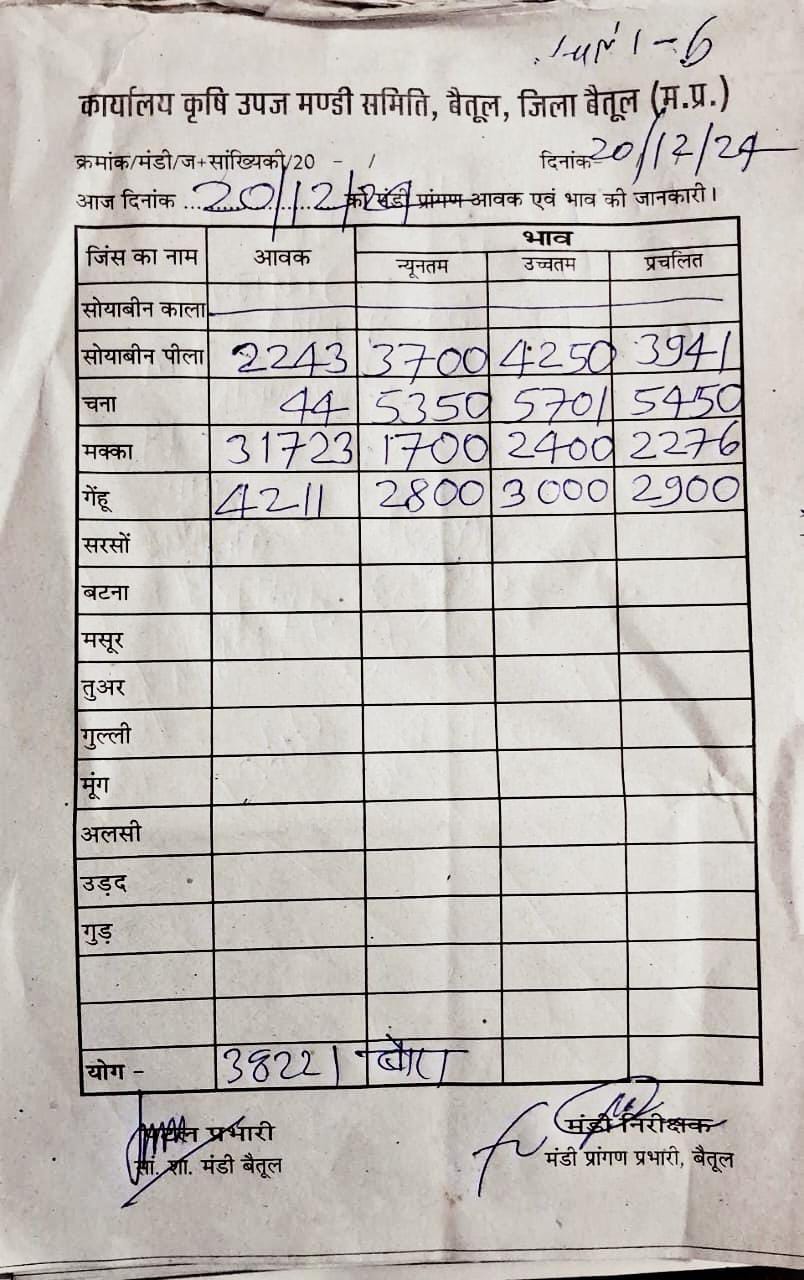 1-6
कार्यालय कृषि उपज मण्डी समिति, बैतूल, जिला बैतूल (म.प्र.)
क्रमांक/मंडी/ज+सांख्यिकी/20 - / दिनांक 20/12/24
आज दिनांक 20/12/24 की मंडी प्रांगण आवक एवं भाव की जानकारी।
जिंस का नाम आवक भाव
न्यूनतम उच्चतम प्रचलित
सोयाबीन काला
सोयाबीन पीला 2243 3700 4250 3941
चना 44 5350 5701 5450
मक्का 31723 1700 2400 2276
गेंहू 4211 2800 3000 2900
सरसों
बटना
मसूर
तुअर
गुल्ली
मूंग
अलसी
उड़द
गुड़
योग - 38221 बोरा
प्रभारी मंडी निरीक्षक
सां. शा. मंडी बैतूल मंडी प्रांगण प्रभारी, बैतूल